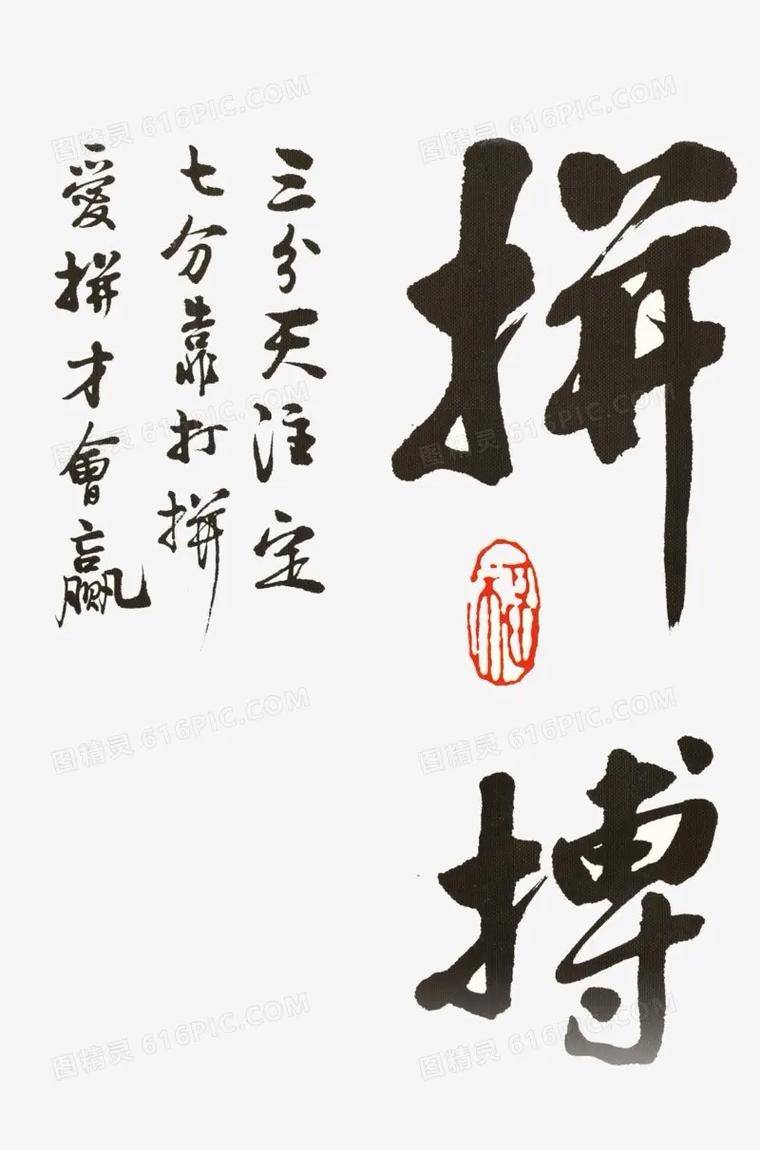 拼搏
三分天注定
七分靠打拼
愛拼才會赢
图精灵 616PIC.COM
图精灵 616PIC.COM
图精灵 616PIC.COM
图精灵 616PIC.COM
图精灵 616PIC.COM
图精灵 616PIC.COM
图精灵 616PIC.COM
图精灵 616PIC.COM